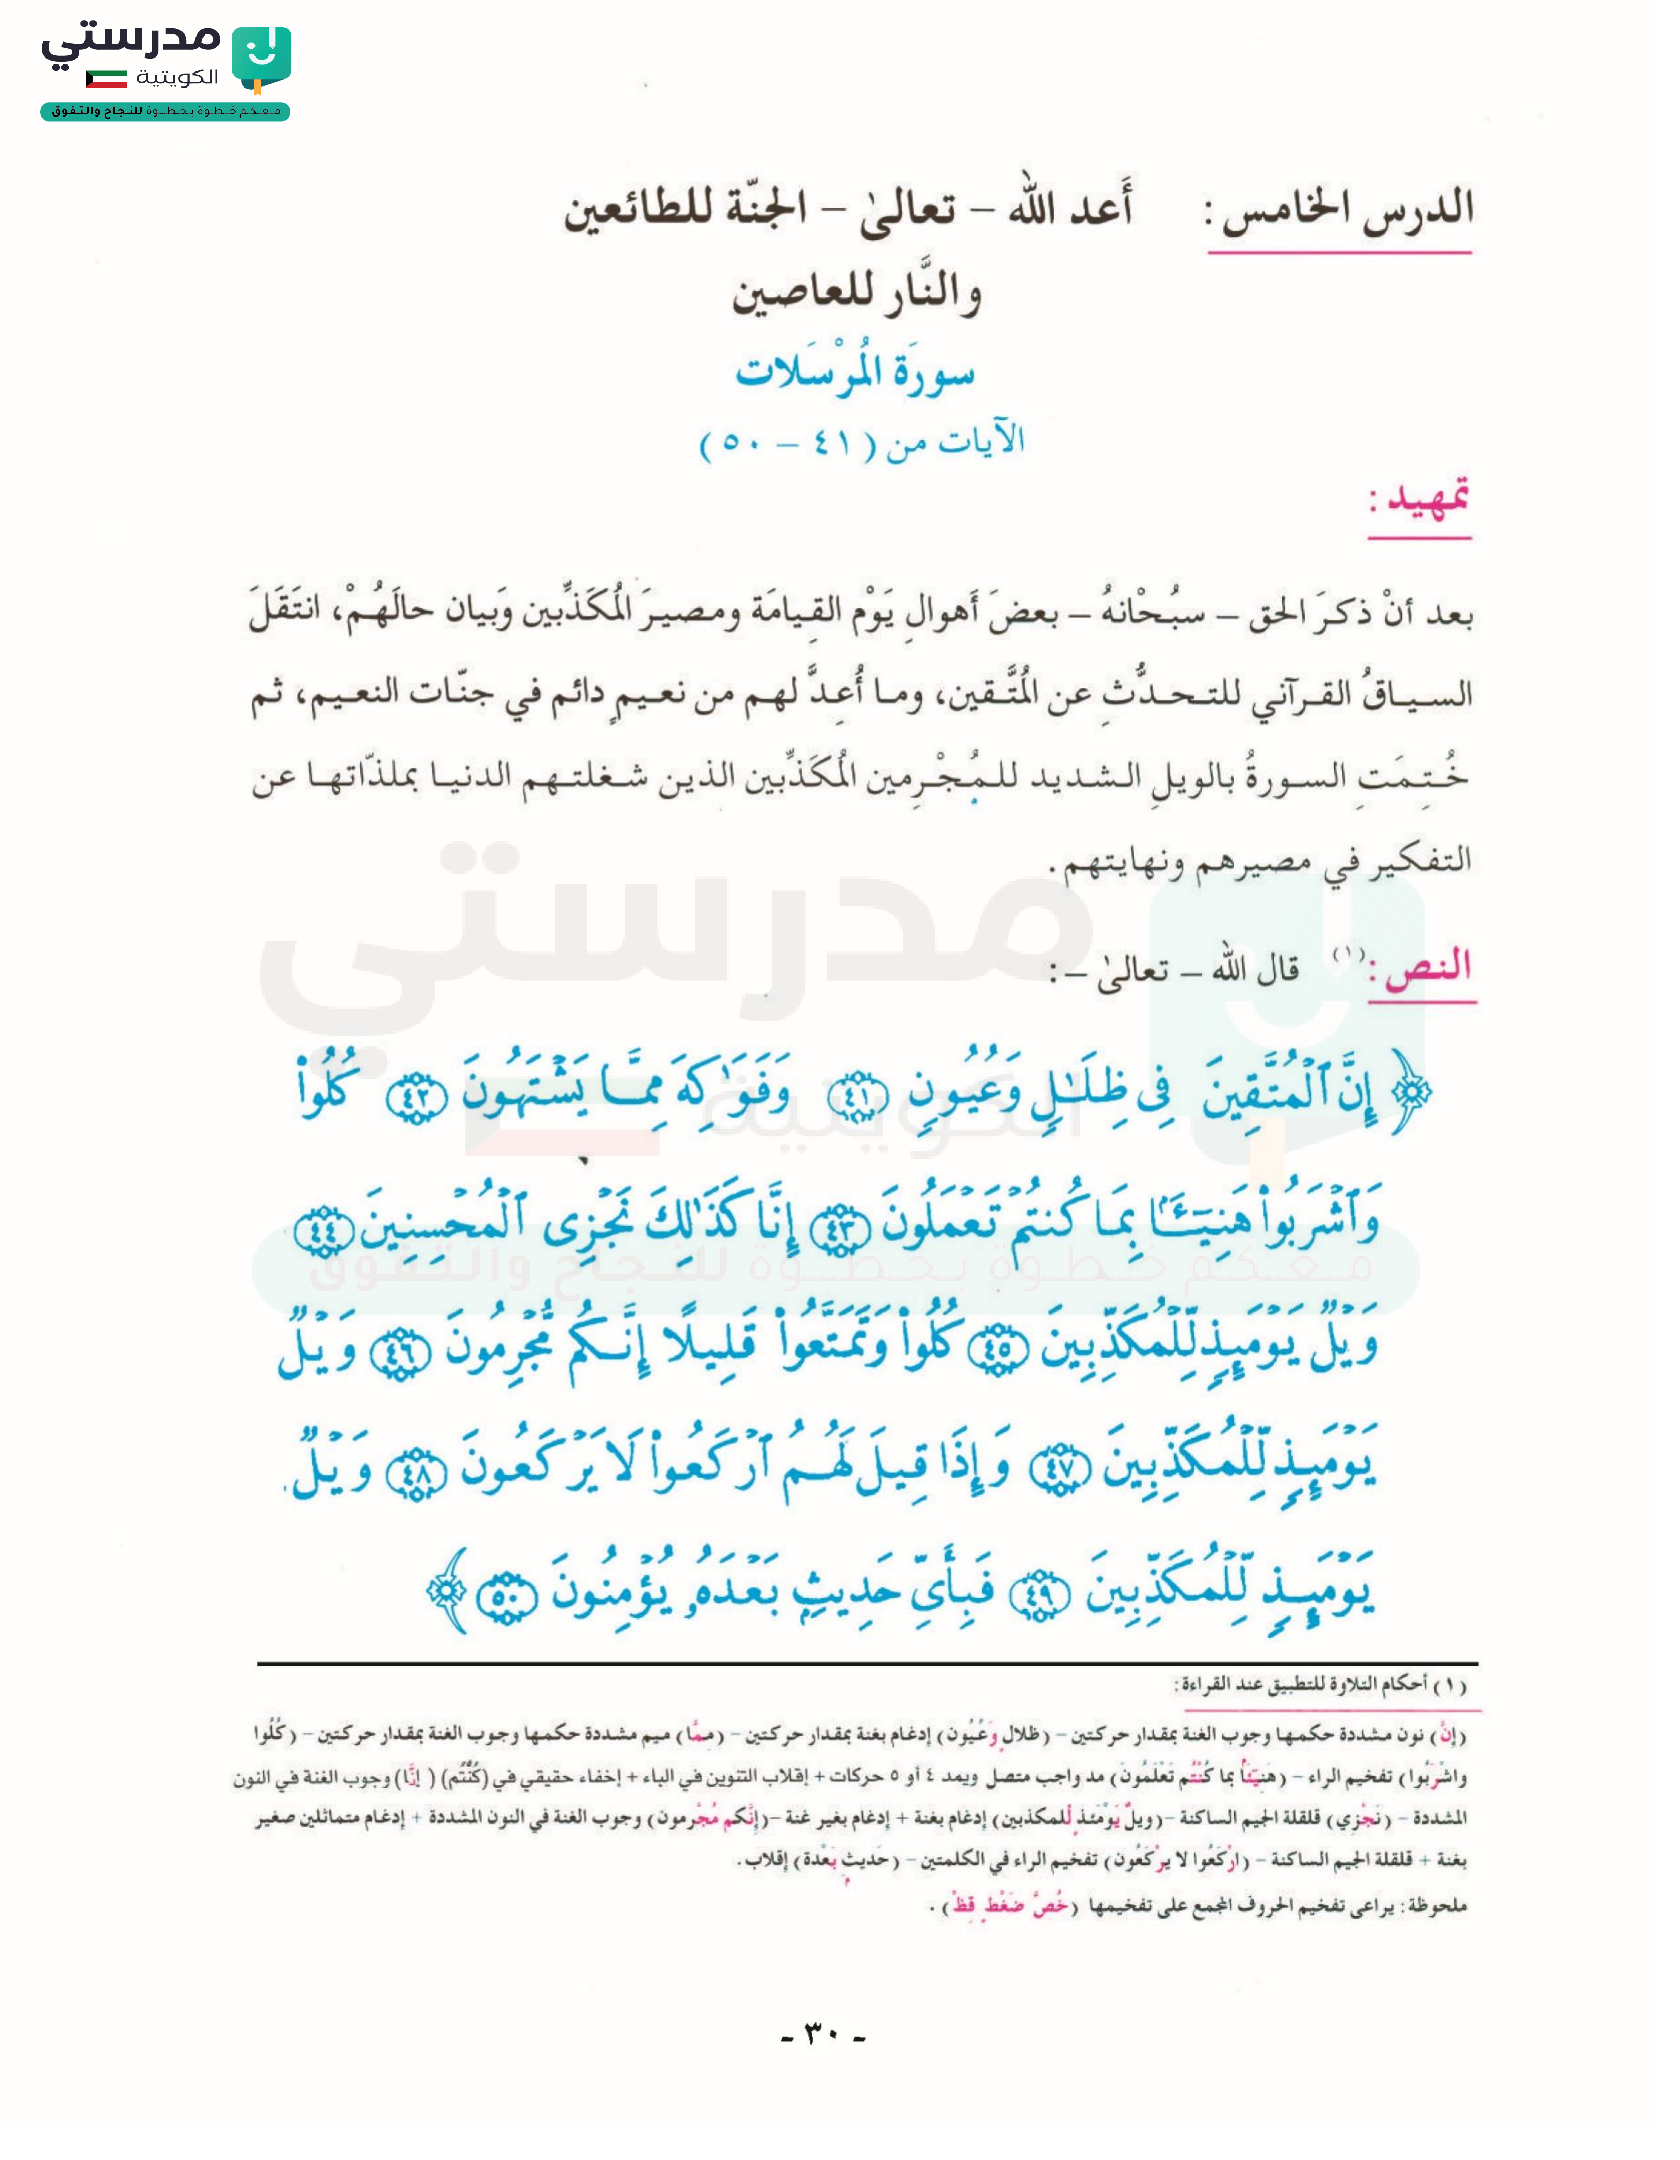 مدرستي
الكويتية
معكم خطوة بخطوة للنجاح والتفوق
الدرس الخامس : أَعد الله – تعالىٰ – الجنّة للطائعين
والنَّار للعاصين
سورَة المُرْسَلات
الآيات من ( ٤١ – ٥٠ )
تمهيد :
بعد أنْ ذكرَ الحق – سبُحْانهُ – بعضَ أَهوالِ يَوْم القِيامَة ومصيرَ المُكَذِّبين وَبيان حالَهُمْ، انتَقَلَ
السياقُ القرآني للتحدُّثِ عن المُتَّقين، وما أُعِدَّ لهم من نعيمٍ دائم في جنّات النعيم، ثم
خُتِمَتِ السورةُ بالويلِ الشديد للمُجْرِمين المُكَذِّبين الذين شغلتهم الدنيا بملذّاتها عن
التفكير في مصيرهم ونهايتهم.
النص :(١) قال الله – تعالىٰ – :
﴿ إِنَّ ٱلْمُتَّقِينَ فِى ظِلَـٰلٍ وَعُيُونٍ ٤١ وَفَوَٰكِهَ مِمَّا يَشْتَهُونَ ٤٢ كُلُوا۟
وَٱشْرَبُوا۟ هَنِيٓـًٔۢا بِمَا كُنتُمْ تَعْمَلُونَ ٤٣ إِنَّا كَذَٰلِكَ نَجْزِى ٱلْمُحْسِنِينَ ٤٤
وَيْلٌ يَوْمَئِذٍ لِّلْمُكَذِّبِينَ ٤٥ كُلُوا۟ وَتَمَتَّعُوا۟ قَلِيلًا إِنَّكُم مُّجْرِمُونَ ٤٦ وَيْلٌ
يَوْمَئِذٍ لِّلْمُكَذِّبِينَ ٤٧ وَإِذَا قِيلَ لَهُمُ ٱرْكَعُوا۟ لَا يَرْكَعُونَ ٤٨ وَيْلٌ
يَوْمَئِذٍ لِّلْمُكَذِّبِينَ ٤٩ فَبِأَىِّ حَدِيثٍۭ بَعْدَهُۥ يُؤْمِنُونَ ٥٠ ﴾
(١) أحكام التلاوة للتطبيق عند القراءة:
(إنَّ) نون مشددة حكمها وجوب الغنة بمقدار حركتين – (ظلالٍ وَعُيُون) إدغام بغنة بمقدار حركتين – (ممَّا) ميم مشددة حكمها وجوب الغنة بمقدار حركتين – (كُلُوا
واشْرَبُوا) تفخيم الراء – (هَنيئاً بما كُنْتُم تَعْلَمُونَ) مد واجب متصل ويمد ٤ أو ٥ حركات + إقلاب التنوين في الباء + إخفاء حقيقي في (كُنْتُم) ( إنَّا) وجوب الغنة في النون
المشددة – (نَجْزي) قلقلة الجيم الساكنة – (ويلٌ يَوْمَئذٍ لِلمكذبين) إدغام بغنة + إدغام بغير غنة – (إنَّكم مُجْرمون) وجوب الغنة في النون المشددة + إدغام متماثلين صغير
بغنة + قلقلة الجيم الساكنة – (ارْكَعُوا لا يرْكَعُون) تفخيم الراء في الكلمتين – (حَديثٍ بَعْدة) إقلاب.
ملحوظة: يراعى تفخيم الحروف المجمع على تفخيمها (خُصَّ ضَغْطٍ قِظْ) .
- ٣٠ -